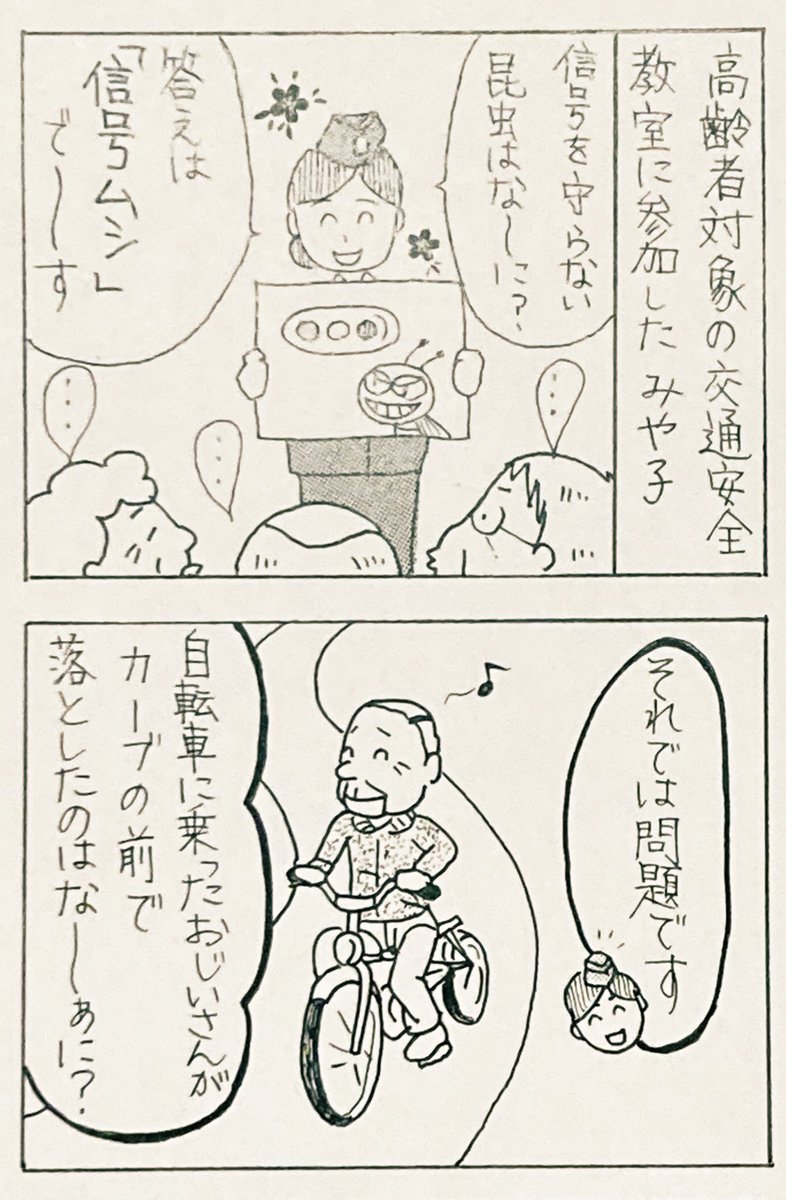 高齢者対象の交通安全
教室に参加したみや子
信号を守らない
昆虫はなーに?
答えは
「信号ムシ」
で〜す
・・・
・・・
・・・
それでは問題です
自転車に乗ったおじいさんが
カーブの前で
落としたのはな〜ぁに?